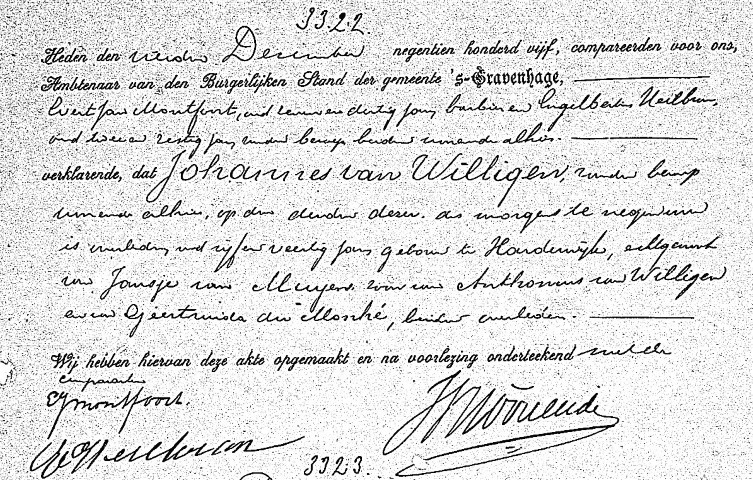 3322.
Heden den vierden December negentien honderd vijf, compareerden voor ons,
Ambtenaar van den Burgerlijken Stand der gemeente 's-Gravenhage,
Evert Jan Montfoort, oud zevenendertig jaar, barbier en Engelbertus
oud tweeenzestig jaar, zonder beroep beiden wonende alhier.
verklarende, dat Johannes van Willigen, zonder beroep
wonende alhier, op den derden dezer des morgens te negen ure
is overleden, oud vijfenveertig jaar geboren te Harderwijk, echtgenoot
van Jansje van Meijers zoon van Anthonius van Willigen
en van Geertruida du Mosché, beiden overleden.
Wij hebben hiervan deze akte opgemaakt en na voorlezing onderteekend met de
comparanten
EJ Montfoort.
3323.